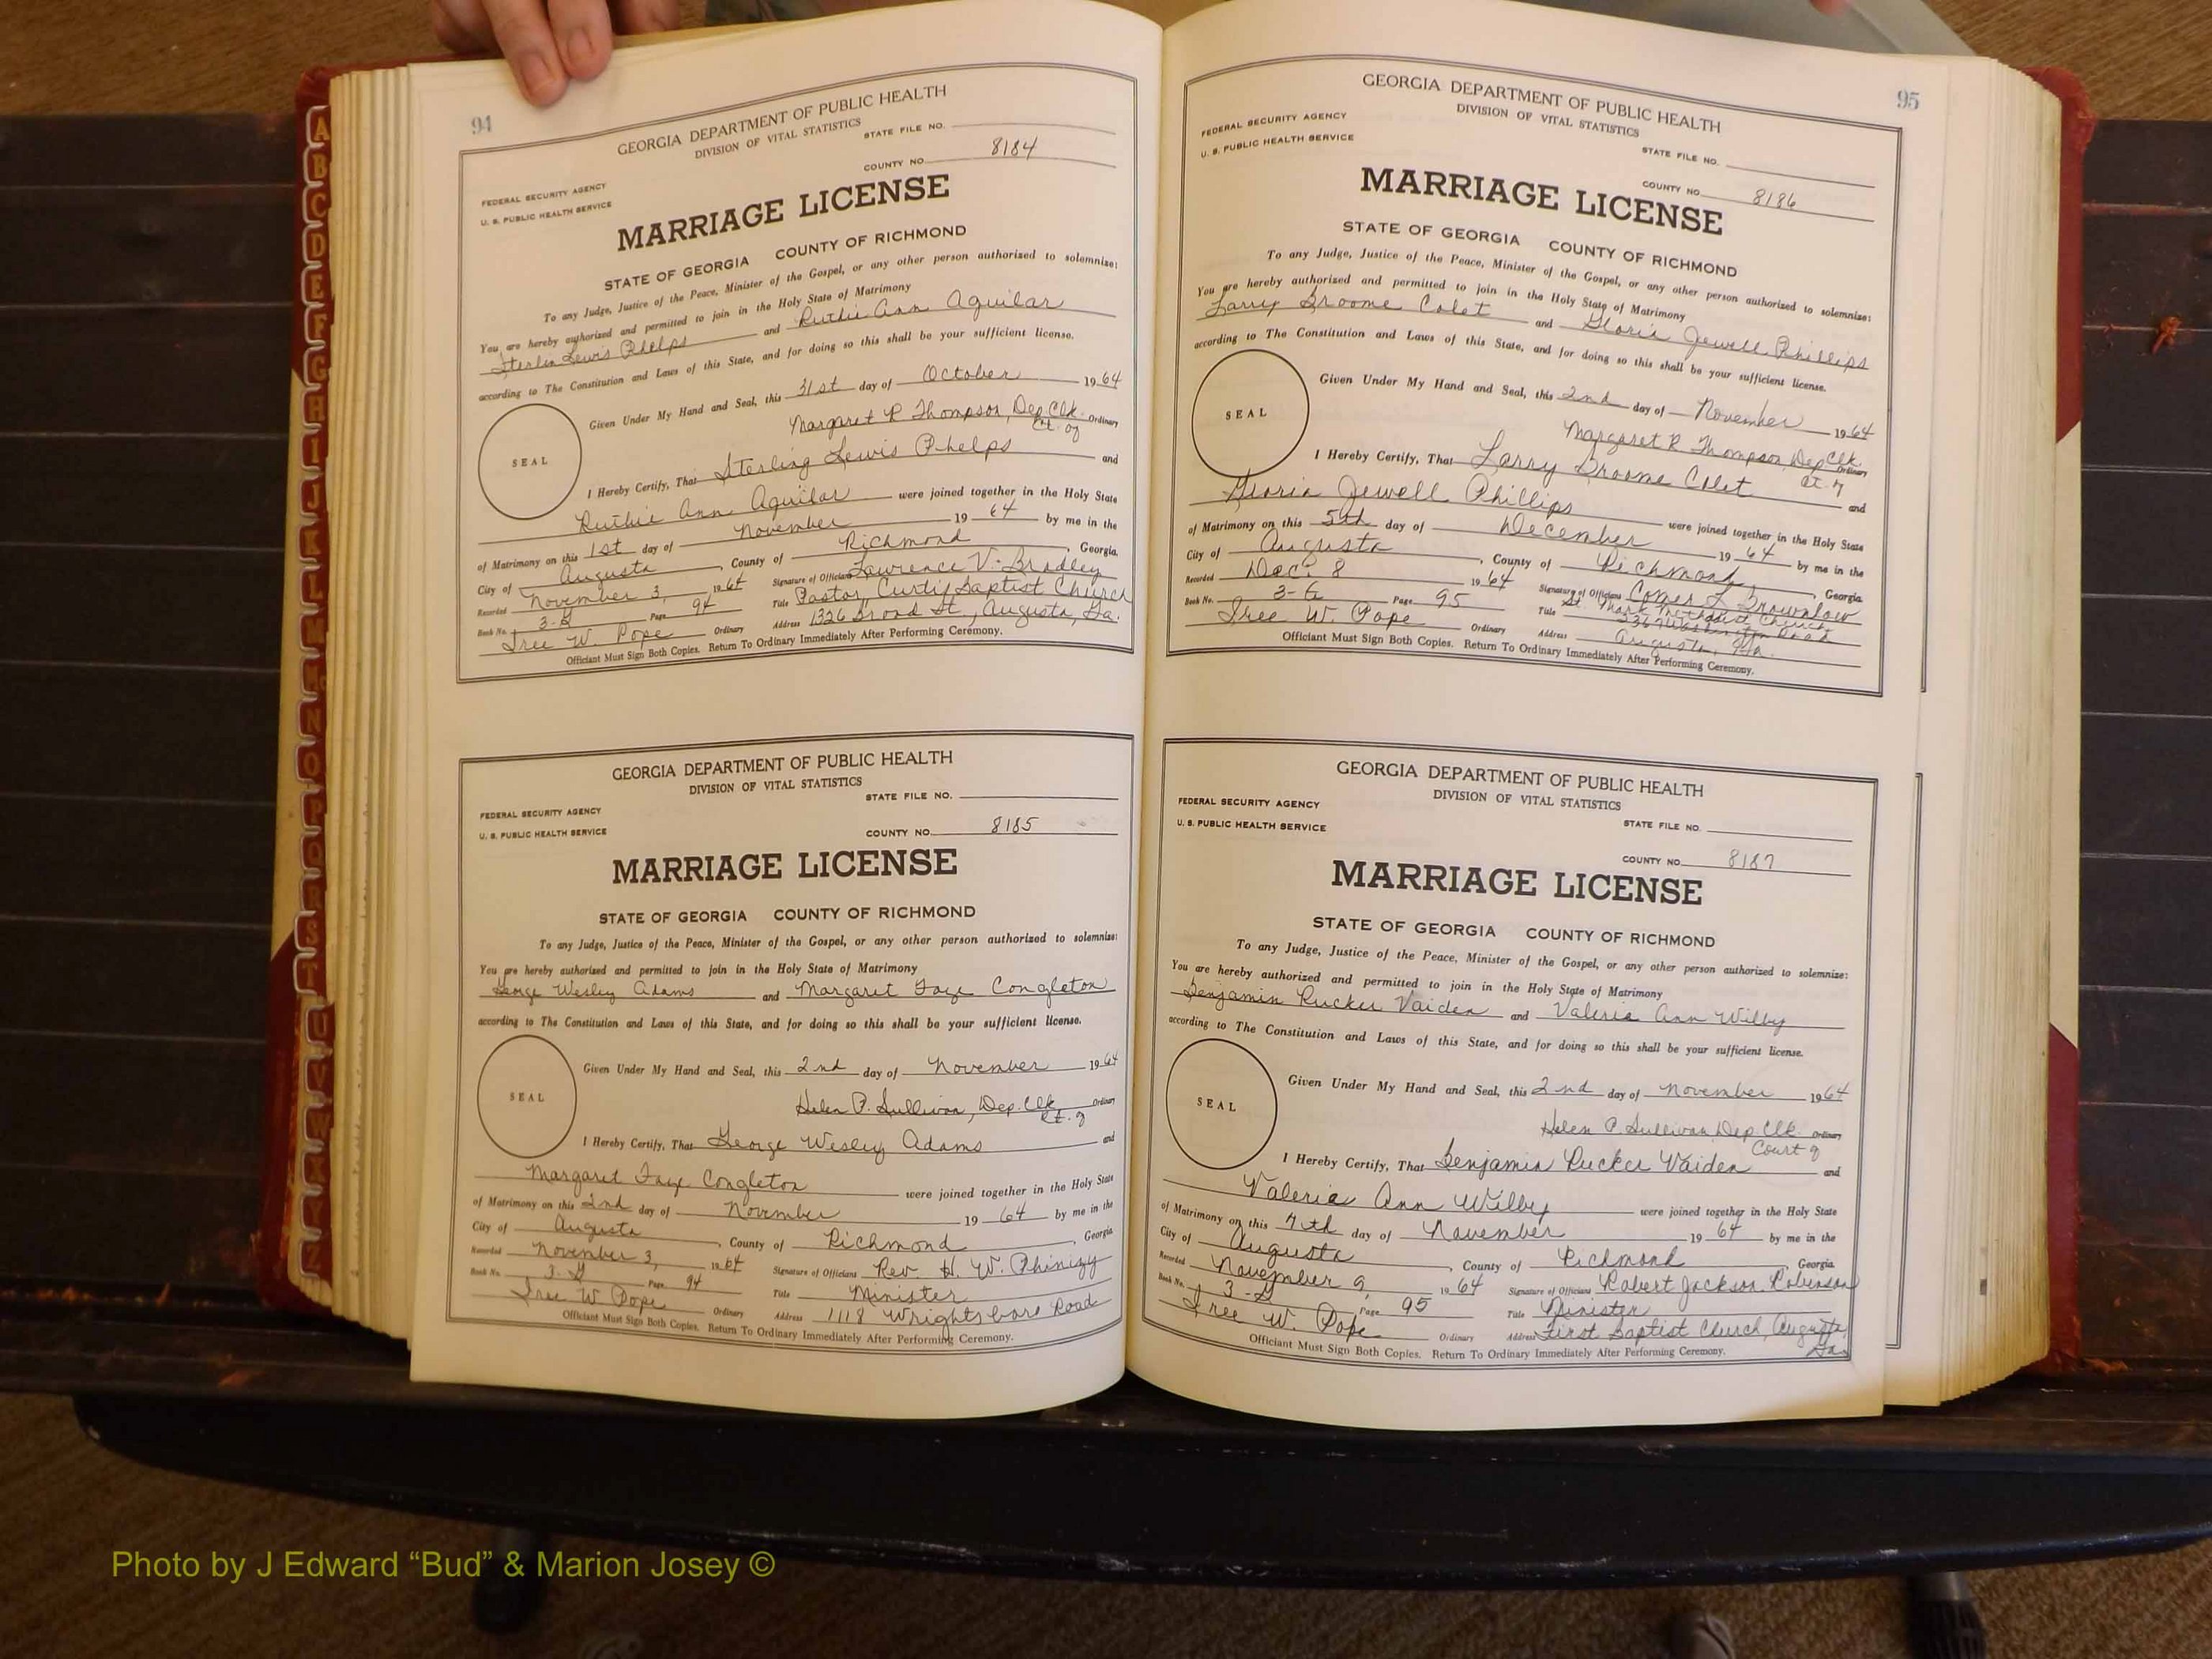 94
GEORGIA DEPARTMENT OF PUBLIC HEALTH
DIVISION OF VITAL STATISTICS
STATE FILE NO.
COUNTY NO. 8184
FEDERAL SECURITY AGENCY
U. S. PUBLIC HEALTH SERVICE
MARRIAGE LICENSE
STATE OF GEORGIA COUNTY OF RICHMOND
To any Judge, Justice of the Peace, Minister of the Gospel, or any other person authorized to solemnize:
You are hereby authorized and permitted to join in the Holy State of Matrimony
Sterlin Lewis Phelps and Ruthie Ann Aguilar
according to The Constitution and Laws of this State, and for doing so this shall be your sufficient license.
Given Under My Hand and Seal, this 31st day of October 1964
SEAL
Margaret R Thompson, Dep Clk Ordinary
Ct. of
I Hereby Certify, That Sterling Lewis Phelps and
Ruthie Ann Aguilar were joined together in the Holy State
of Matrimony on this 1st day of November 19 64 by me in the
City of Augusta, County of Richmond, Georgia.
Recorded November 3, 1964 Signature of Officiant Lawrence V. Bradley
Book No. 3-G Page 94 Title Pastor, Curtis Baptist Church
Iree W. Pope Ordinary Address 1326 Broad St, Augusta, Ga.
Officiant Must Sign Both Copies. Return To Ordinary Immediately After Performing Ceremony.
GEORGIA DEPARTMENT OF PUBLIC HEALTH
DIVISION OF VITAL STATISTICS
STATE FILE NO.
FEDERAL SECURITY AGENCY
U. S. PUBLIC HEALTH SERVICE
COUNTY NO. 8185
MARRIAGE LICENSE
STATE OF GEORGIA COUNTY OF RICHMOND
To any Judge, Justice of the Peace, Minister of the Gospel, or any other person authorized to solemnize:
You are hereby authorized and permitted to join in the Holy State of Matrimony
George Wesley Adams and Margaret Faye Congleton
according to The Constitution and Laws of this State, and for doing so this shall be your sufficient license.
Given Under My Hand and Seal, this 2nd day of November 1964
SEAL
Helen P. Sullivan, Dep. Clk Ordinary
Ct. of
I Hereby Certify, That George Wesley Adams and
Margaret Faye Congleton were joined together in the Holy State
of Matrimony on this 2nd day of November 19 64 by me in the
City of Augusta, County of Richmond, Georgia
Recorded November 3, 1964 Signature of Officiant Rev. H. W. Phinizy
Book No. 3-G Page 94 Title Minister
Iree W Pope Ordinary Address 1118 Wrightsboro Road
Officiant Must Sign Both Copies. Return To Ordinary Immediately After Performing Ceremony.
95
GEORGIA DEPARTMENT OF PUBLIC HEALTH
DIVISION OF VITAL STATISTICS
FEDERAL SECURITY AGENCY
U. S. PUBLIC HEALTH SERVICE
STATE FILE NO.
COUNTY NO. 8186
MARRIAGE LICENSE
STATE OF GEORGIA COUNTY OF RICHMOND
To any Judge, Justice of the Peace, Minister of the Gospel, or any other person authorized to solemnize:
You are hereby authorized and permitted to join in the Holy State of Matrimony
Larry Broome Colet and Gloria Jewell Phillips
according to The Constitution and Laws of this State, and for doing so this shall be your sufficient license.
Given Under My Hand and Seal, this 2nd day of November 1964
SEAL
Margaret R Thompson, Dep Clk Ordinary
Ct. of
I Hereby Certify, That Larry Broome Colet and
Gloria Jewell Phillips were joined together in the Holy State
of Matrimony on this 5th day of December 19 64 by me in the
City of Augusta, County of Richmond, Georgia
Recorded Dec. 8 1964 Signature of Officiant Comer L. Brownlow
Book No. 3-G Page 95 Title St. Mark Methodist Church
Washington Road
Iree W. Pope Ordinary Address Augusta, Ga.
Officiant Must Sign Both Copies. Return To Ordinary Immediately After Performing Ceremony.
GEORGIA DEPARTMENT OF PUBLIC HEALTH
DIVISION OF VITAL STATISTICS
FEDERAL SECURITY AGENCY
U. S. PUBLIC HEALTH SERVICE
STATE FILE NO.
COUNTY NO. 8187
MARRIAGE LICENSE
STATE OF GEORGIA COUNTY OF RICHMOND
To any Judge, Justice of the Peace, Minister of the Gospel, or any other person authorized to solemnize:
You are hereby authorized and permitted to join in the Holy State of Matrimony
Benjamin Rucker Vaiden and Valerie Ann Wilby
according to The Constitution and Laws of this State, and for doing so this shall be your sufficient license.
Given Under My Hand and Seal, this 2nd day of November 1964
SEAL
Helen P. Sullivan, Dep. Clk Ordinary
Court of
I Hereby Certify, That Benjamin Rucker Vaiden and
Valerie Ann Wilby were joined together in the Holy State
of Matrimony on this 7th day of November 19 64 by me in the
City of Augusta, County of Richmond, Georgia
Recorded November 9, 1964 Signature of Officiant Robert Jackson Robinson
Book No. 3-G Page 95 Title Minister
Iree W. Pope Ordinary Address First Baptist Church, Augusta,
Ga.
Officiant Must Sign Both Copies. Return To Ordinary Immediately After Performing Ceremony.
A
B
C
D
E
F
G
H
I
J
K
L
M
Mc
N
O
P
Q
R
S
T
U
V
W
X
Y
Z
Photo by J Edward “Bud” & Marion Josey ©